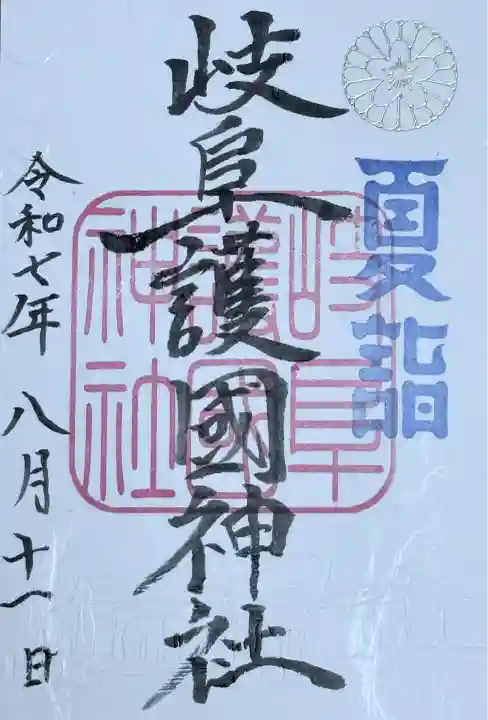 夏詣
岐阜護國神社
岐阜
護國
神社
令和七年 八月十一日